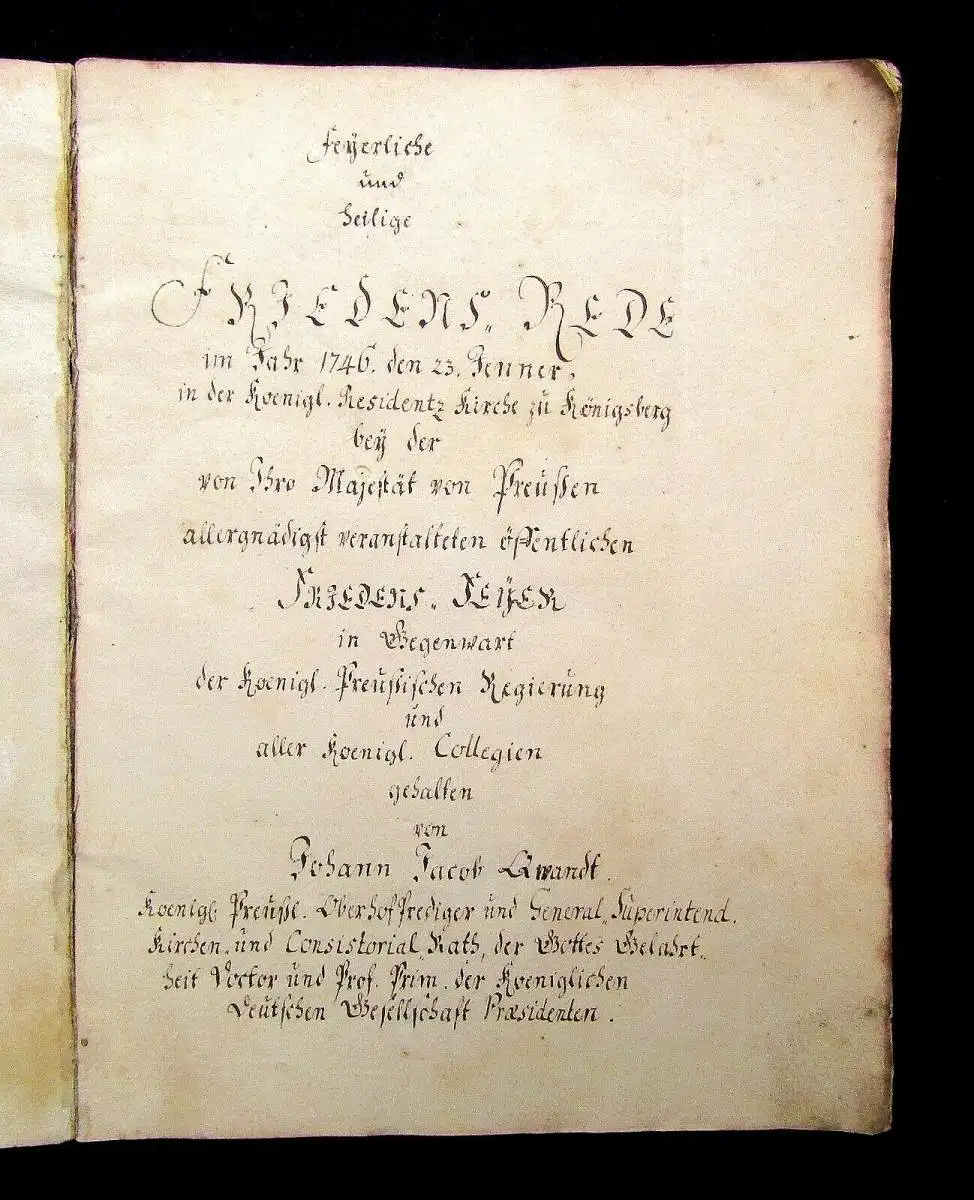 Feyerliche
und
heilige
FRIEDENS„ REDE
im Jahr 1746. den 23. Jenner.
in der Koenigl. Residentz Kirche zu Königsberg
beÿ der
von Ihro Majestät von Preußen
allergnädigst veranstalteten öffentlichen
FRIEDENS„ FEŸER
in Gegenwart
der Koenigl. Preußischen Regierung
und
aller Koenigl. Collegien
gehalten
von
Johann Jacob Qwandt.
Koenigl. Preußl. Oberhofprediger und General„Superintend.
Kirchen„und Consistorial„Rath, der Gottes Gelahrt„
heit Doctor und Prof. Prim. der Koeniglichen
Deutschen Gesellschaft Præsidenten.